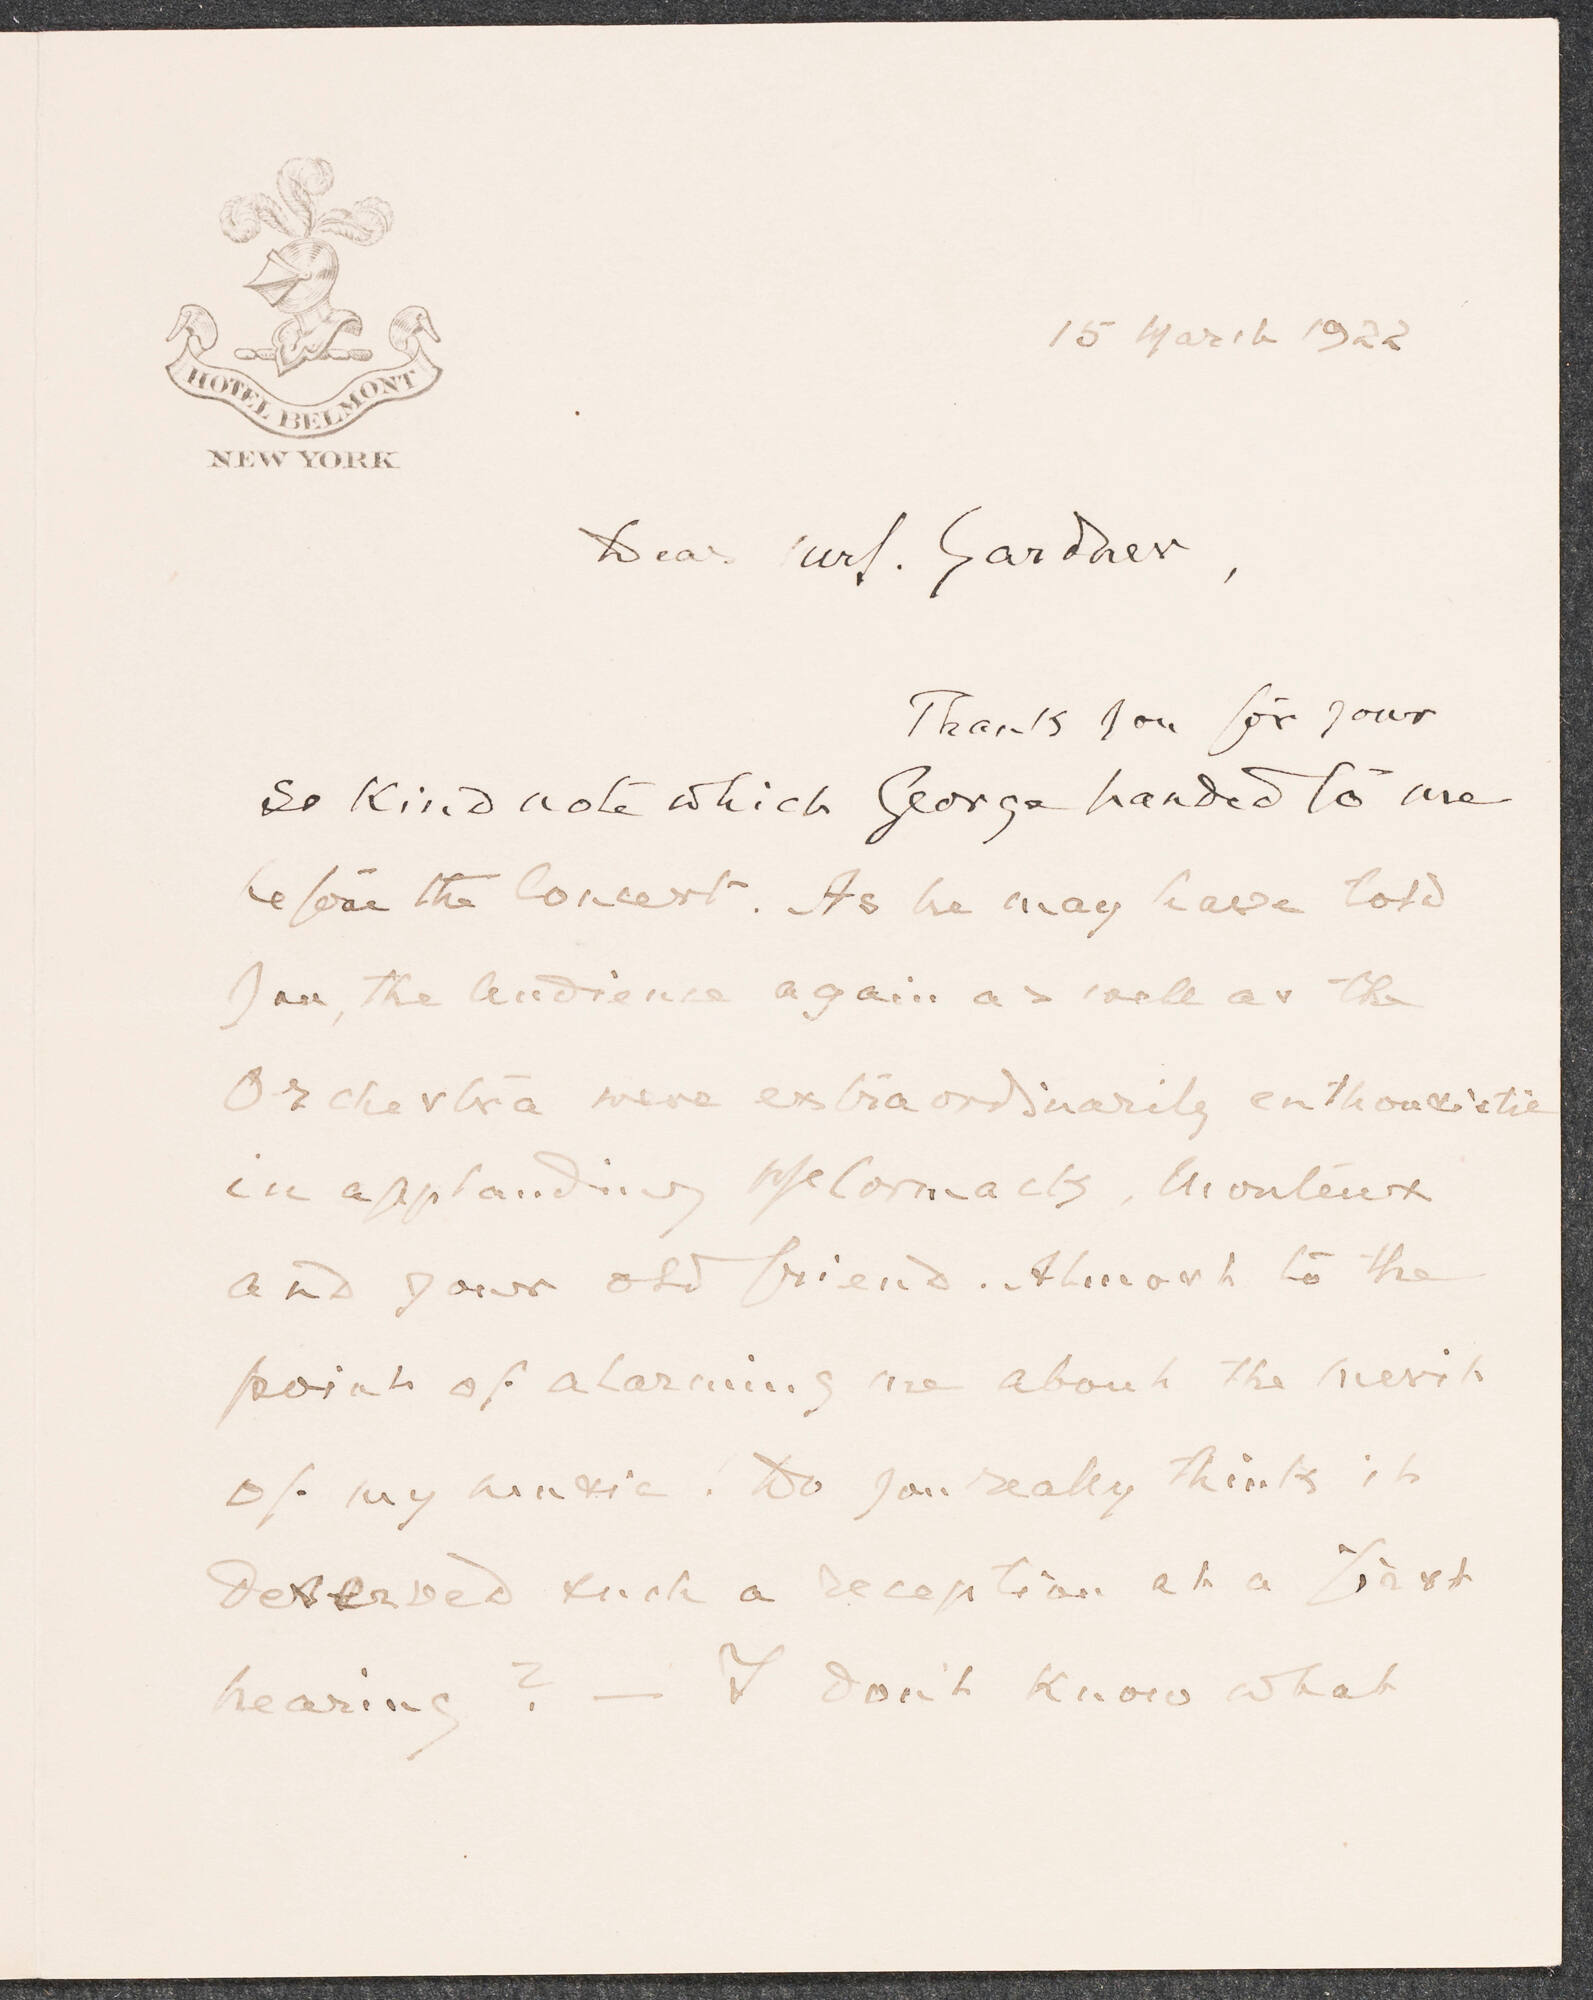 HOTEL BELMONT
NEW YORK
15 March 1922
Dear Mrs. Gardner,
Thank you for your
so kind note which George handed to me
before the Concert. As he may have told
you, the Audience again as well as the
Orchestra were extraordinarily enthousiastic
in applauding McCormack, Monteux
and your old friend. Almost to the
point of alarming me about the merit
of my music! Do you really think it
deserved such a reception at a first
hearing? — I don't know what